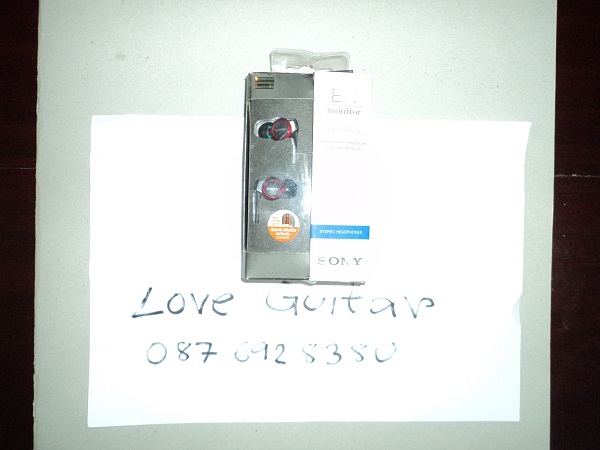 EX
monitor
STEREO HEADPHONES
SONY
Love Guitar
087 6928380